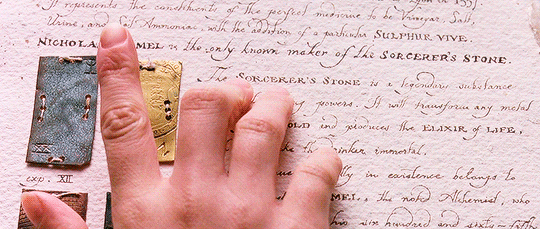 It represents the constituents of the perfect medicine to be Vinegar, Salt,
Urine, and Sal Ammoniac, with the addition of a particular SULPHUR VIVE.
NICHOLA MEL is the only known maker of the SORCERER'S STONE.
The SORCERER'S STONE is a legendary substance
powers. It will transform any metal
OLD and produces the ELIXIR of LIFE,
the drinker immortal.
XX
exp. XII
in existence belongs to
MEL, the noted Alchemist, who
his six hundred and sixty-fifth